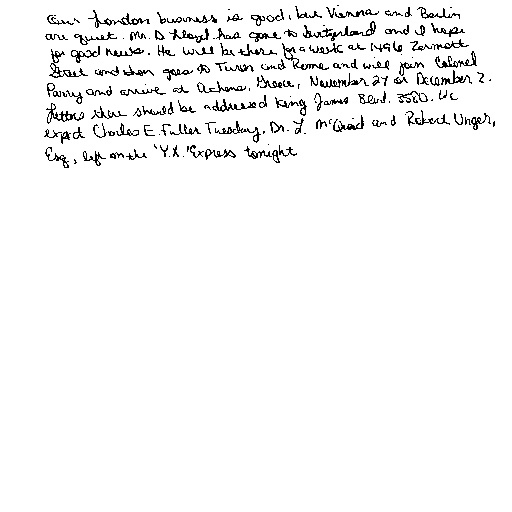 Our London business is good, but Vienna and Berlin
are quiet. Mr. D Lloyd has gone to Switzerland and I hope
for good news. He will be there for a week at 1496 Zermott
Street and then goes to Turin and Rome and will join Colonel
Parry and arrive at Athens, Greece, November 27 or December 2.
Letters there should be addressed King James Blvd. 3580. We
expect Charles E. Fuller Tuesday. Dr. L. McQuaid and Robert Unger,
Esq., left on the "Y.X." Express tonight